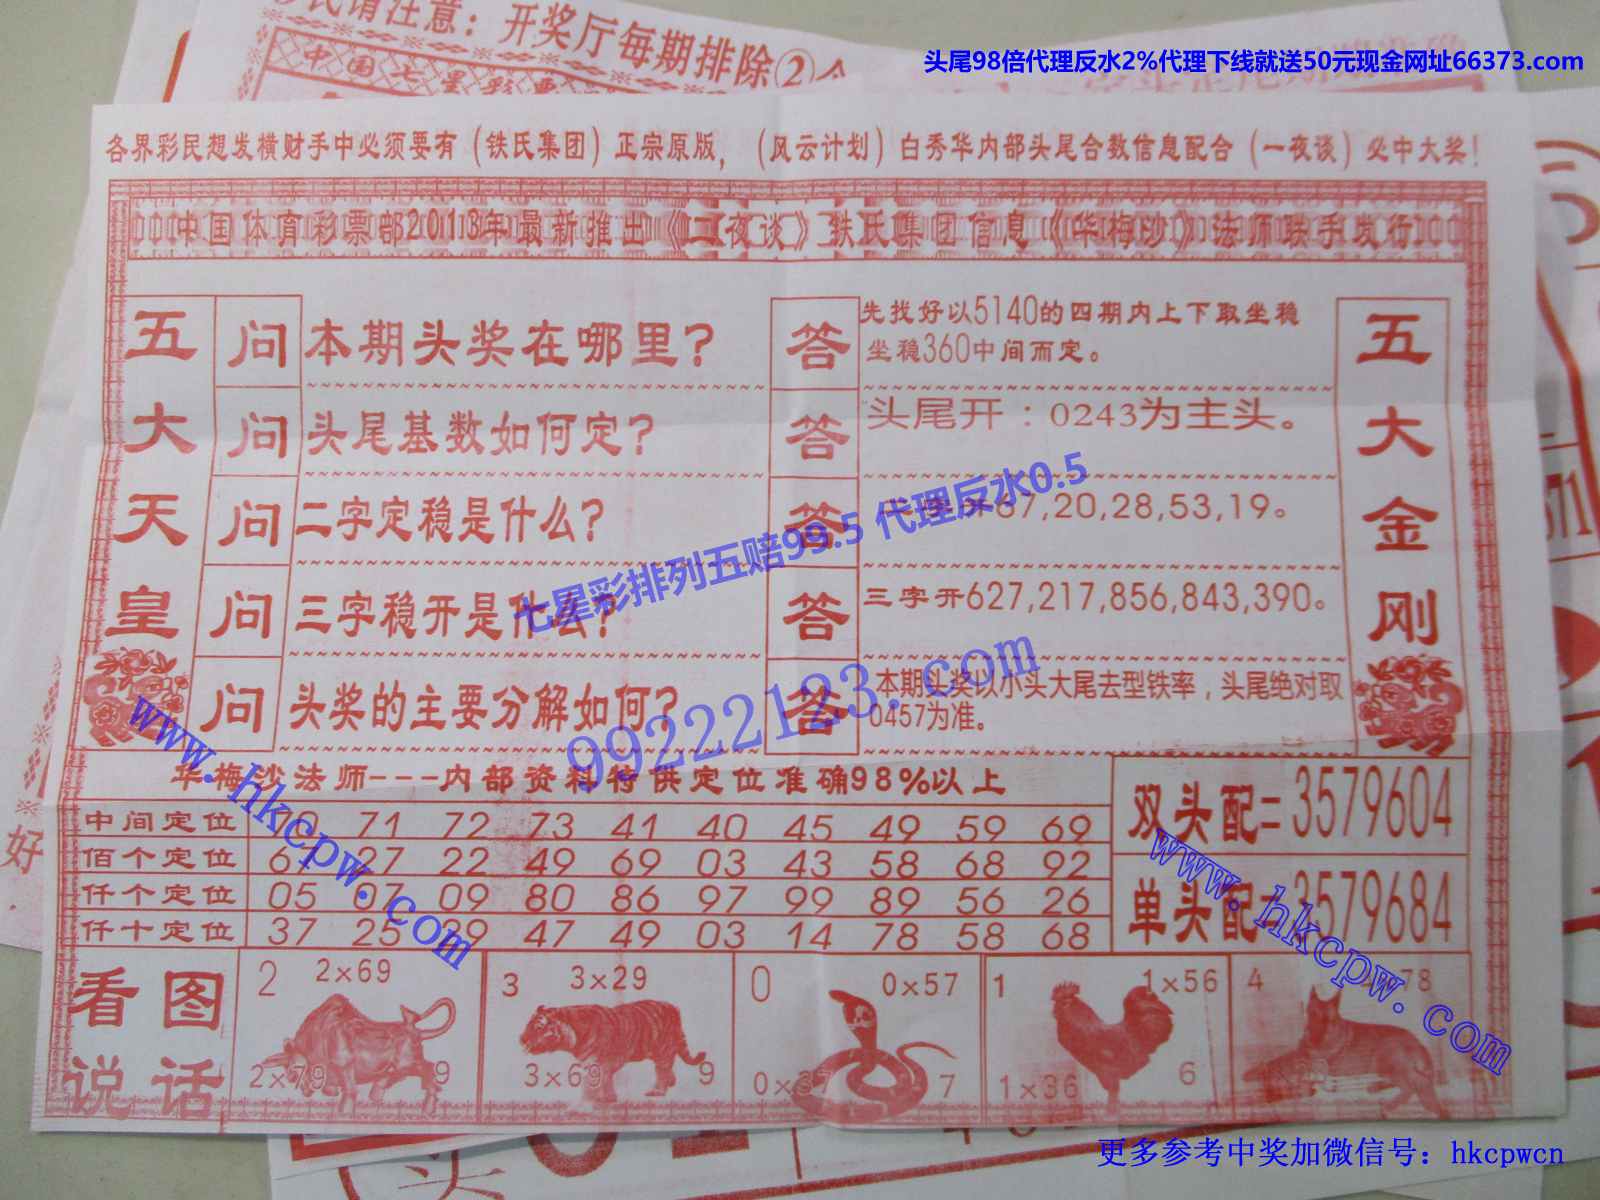 民请注意：开奖厅每期排除②个
中国七星彩票
头尾98倍代理反水2%代理下线就送50元现金网址66373.com
各界彩民想发横财手中必须要有（铁氏集团）正宗原版，（风云计划）白秀华内部头尾合数信息配合（一夜谈）必中大奖！
中国体育彩票部2013年最新推出《一夜谈》铁氏集团信息《华梅沙》法师联手发行
五大天皇
问 本期头奖在哪里？
答 先找好以5140的四期内上下取坐稳
坐稳360中间而定。
问 头尾基数如何定？
答 头尾开：0243为主头。
问 二字定稳是什么？
答 二字开67,20,28,53,19。
问 三字稳开是什么？
答 三字开627,217,856,843,390。
问 头奖的主要分解如何？
答 本期头奖以小头大尾去型铁率，头尾绝对取
0457为准。
五大金刚
七星彩排列五赔99.5 代理反水0.5
99222123.com
www.hkcpw.com
华梅沙法师---内部资料特供定位准确98%以上
中间定位 70 71 72 73 41 40 45 49 59 69
佰个定位 27 22 49 69 03 43 58 68 92
仟个定位 05 07 09 80 86 97 99 89 56 26
仟十定位 37 25 29 47 49 03 14 78 58 68
双头配=3579604
单头配=3579684
www.hkcpw.com
看图说话
2 2×69
2×79 9
3 3×29
3×69 9
0 0×57
0×37 7
1 1×56
1×36 6
4 78
好
571
更多参考中奖加微信号：hkcpwcn